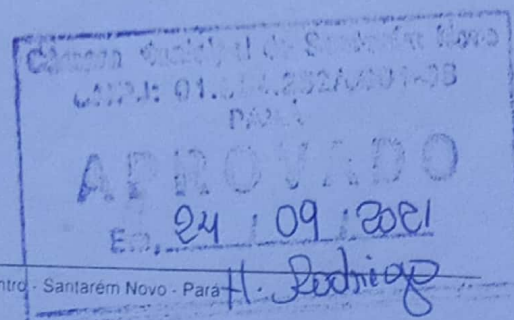 Câmara Municipal de Santarém Novo
CNPJ: 01.
PARÁ
APROVADO
Em, 24 / 09 / 2021
ntro - Santarém Novo - Pará H. Rodrigo